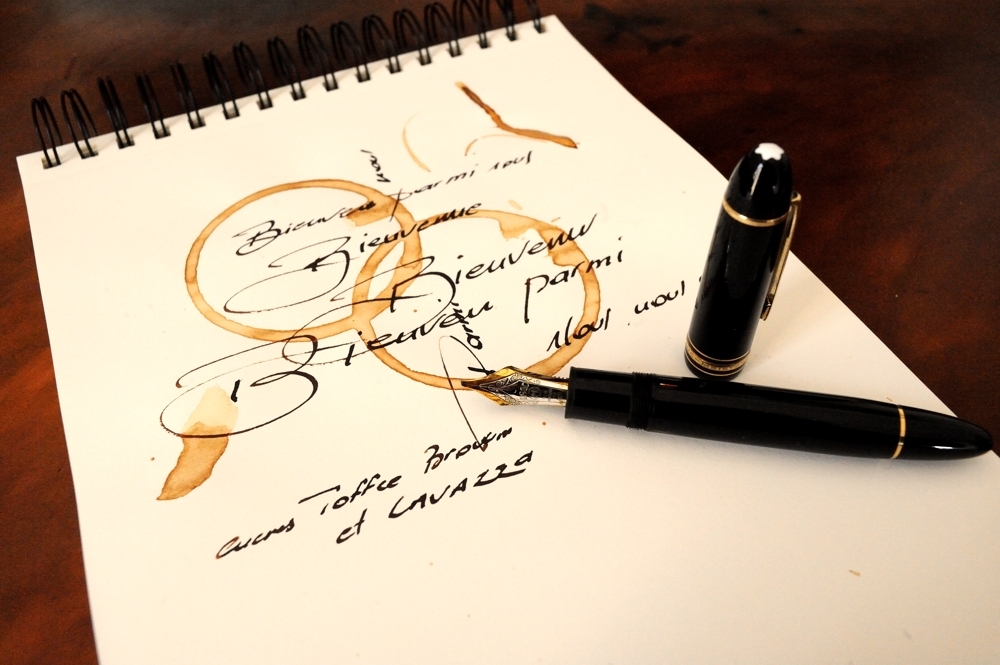 nous
Bienvenue parmi nous
Bienvenue
Bienvenu
Bienvenu parmi
nous
Nous nous
encres Toffee Brown
et LAVAZZA